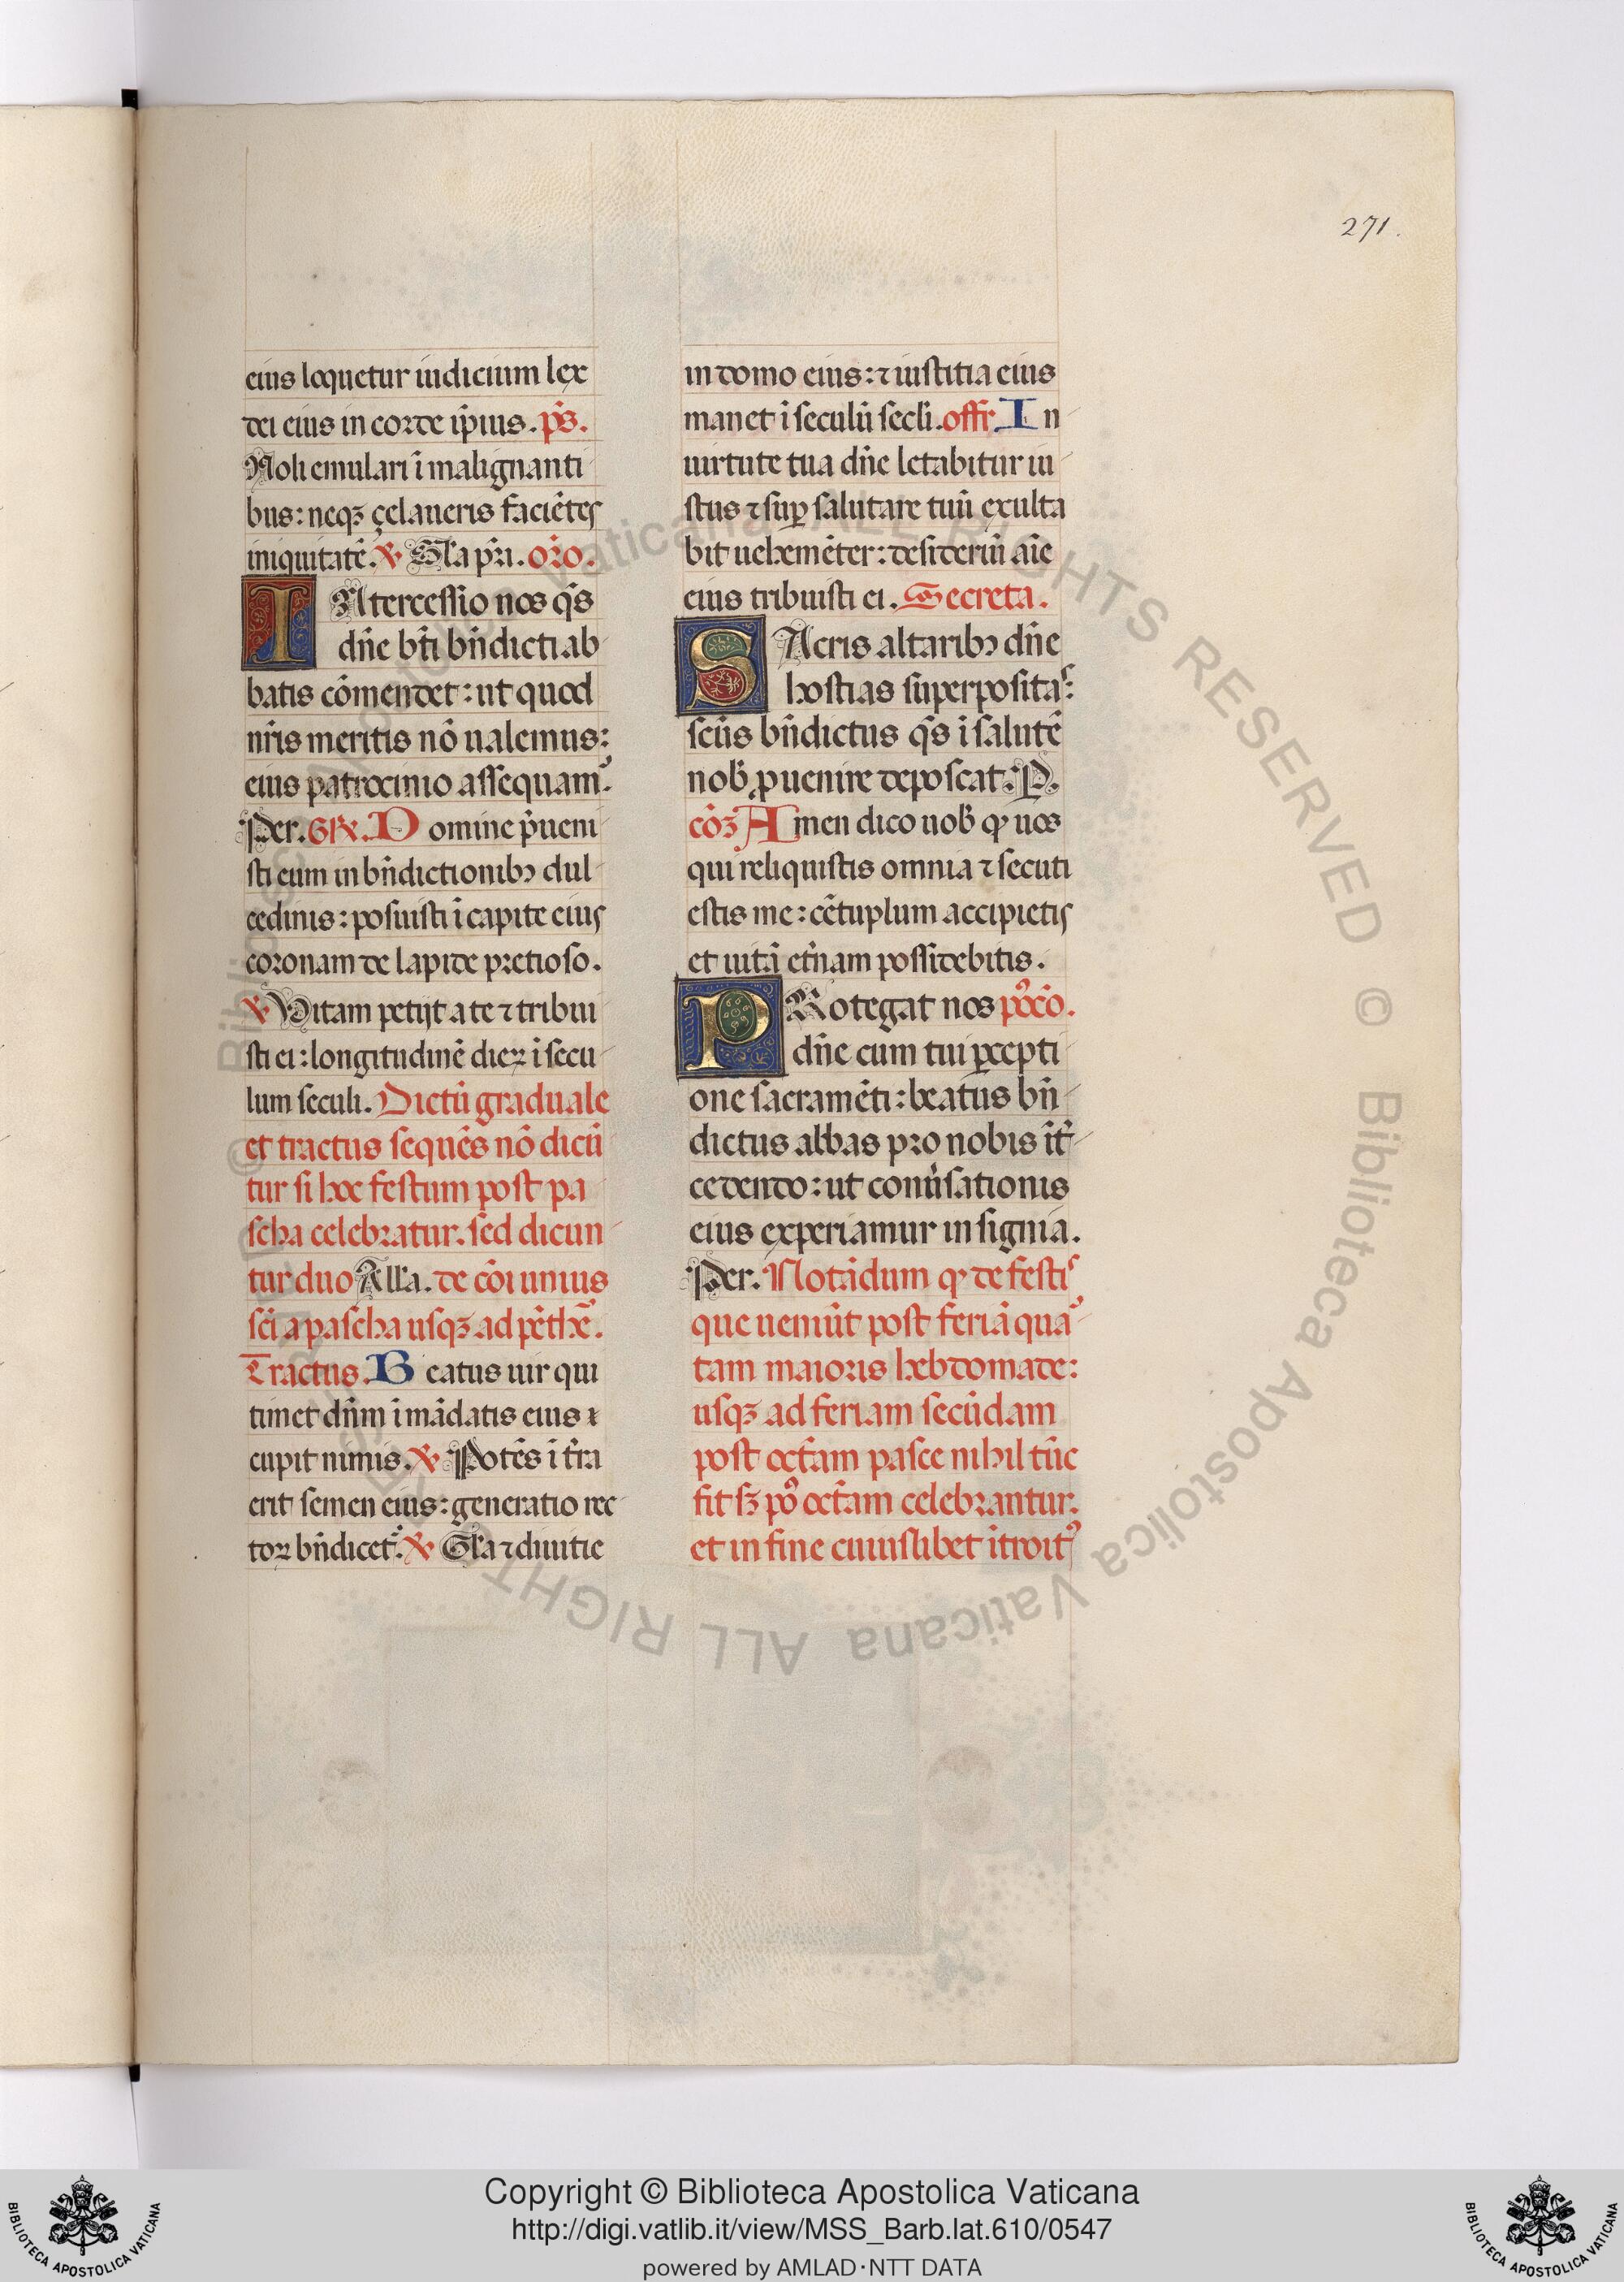 271.
eius loquetur iudicium lex
dei eius in corde ip̄ius. p̄s.
Noli emulari ī malignanti
bus: neqꝫ çelaueris faciētes
iniquitatē. ℣ Gl̄a pr̄i. or̄o.
INtercessio nos q̄s
dn̄e bt̄i bn̄dicti ab
batis cōmendet: ut quod
nr̄is meritis nō ualemus:
eius patrocinio assequamꝰ.
Per. Gr̄. Domine p̄ueni
sti eum in bn̄dictionibꝫ dul
cedinis: posuisti ī capite eius
coronam de lapide pretioso.
℣ Vitam petijt a te ⁊ tribui
sti ei: longitudinē dieꝝ ī secu
lum seculi. Dictū graduale
et tractus sequēs nō dicū
tur si hoc festum post pa
scha celebratur. sed dicun
tur duo All̄a. de cōi unius
sc̄i a pascha usqꝫ ad pēthē.
Tractus. Beatus uir qui
timet dn̄m ī mādatis eius
cupit nimis. ℣ Potēs ī tr̄a
erit semen eius: generatio rec
toꝝ bn̄dicet᷑. ℣ Gl̄a ⁊ diuitie
in domo eius: ⁊ iustitia eius
manet ī seculū secl̄i. offr̄. In
uirtute tua dn̄e letabitur iu
stus ⁊ suꝑ salutare tuū exulta
bit uehemēter: desideriū aīe
eius tribuisti ei. Secreta.
SAcris altaribꝫ dn̄e
hostias superpositas:
sc̄us bn̄dictus q̄s ī salutē
nob̄ ꝓuenire deposcat. P.
cōꝫ Amen dico uob̄ ꝙ uos
qui reliquistis omnia ⁊ secuti
estis me: cētuplum accipietis
et uitā et̄nam possidebitis.
PRotegat nos pꝰcō.
dn̄e cum tui ꝑcepti
one sacramēti: beatus bn̄
dictus abbas pro nobis īt̄
cedendo: ut conūsationis
eius experiamur insignia.
Per. Notādum ꝙ de festis
que ueniūt post feriā quar
tam maioris hebdomade:
usqꝫ ad feriam secūdam
post oct̄am pasce nihil tūc
fit sꝫ pꝰ oct̄am celebrantur.
et in fine cuiuslibet ītroitꝰ
Copyright © Biblioteca Apostolica Vaticana
http://digi.vatlib.it/view/MSS_Barb.lat.610/0547
powered by AMLAD·NTT DATA
BIBLIOTECA APOSTOLICA VATICANA
BIBLIOTECA APOSTOLICA VATICANA
© Biblioteca Apostolica Vaticana ALL RIGHTS RESERVED